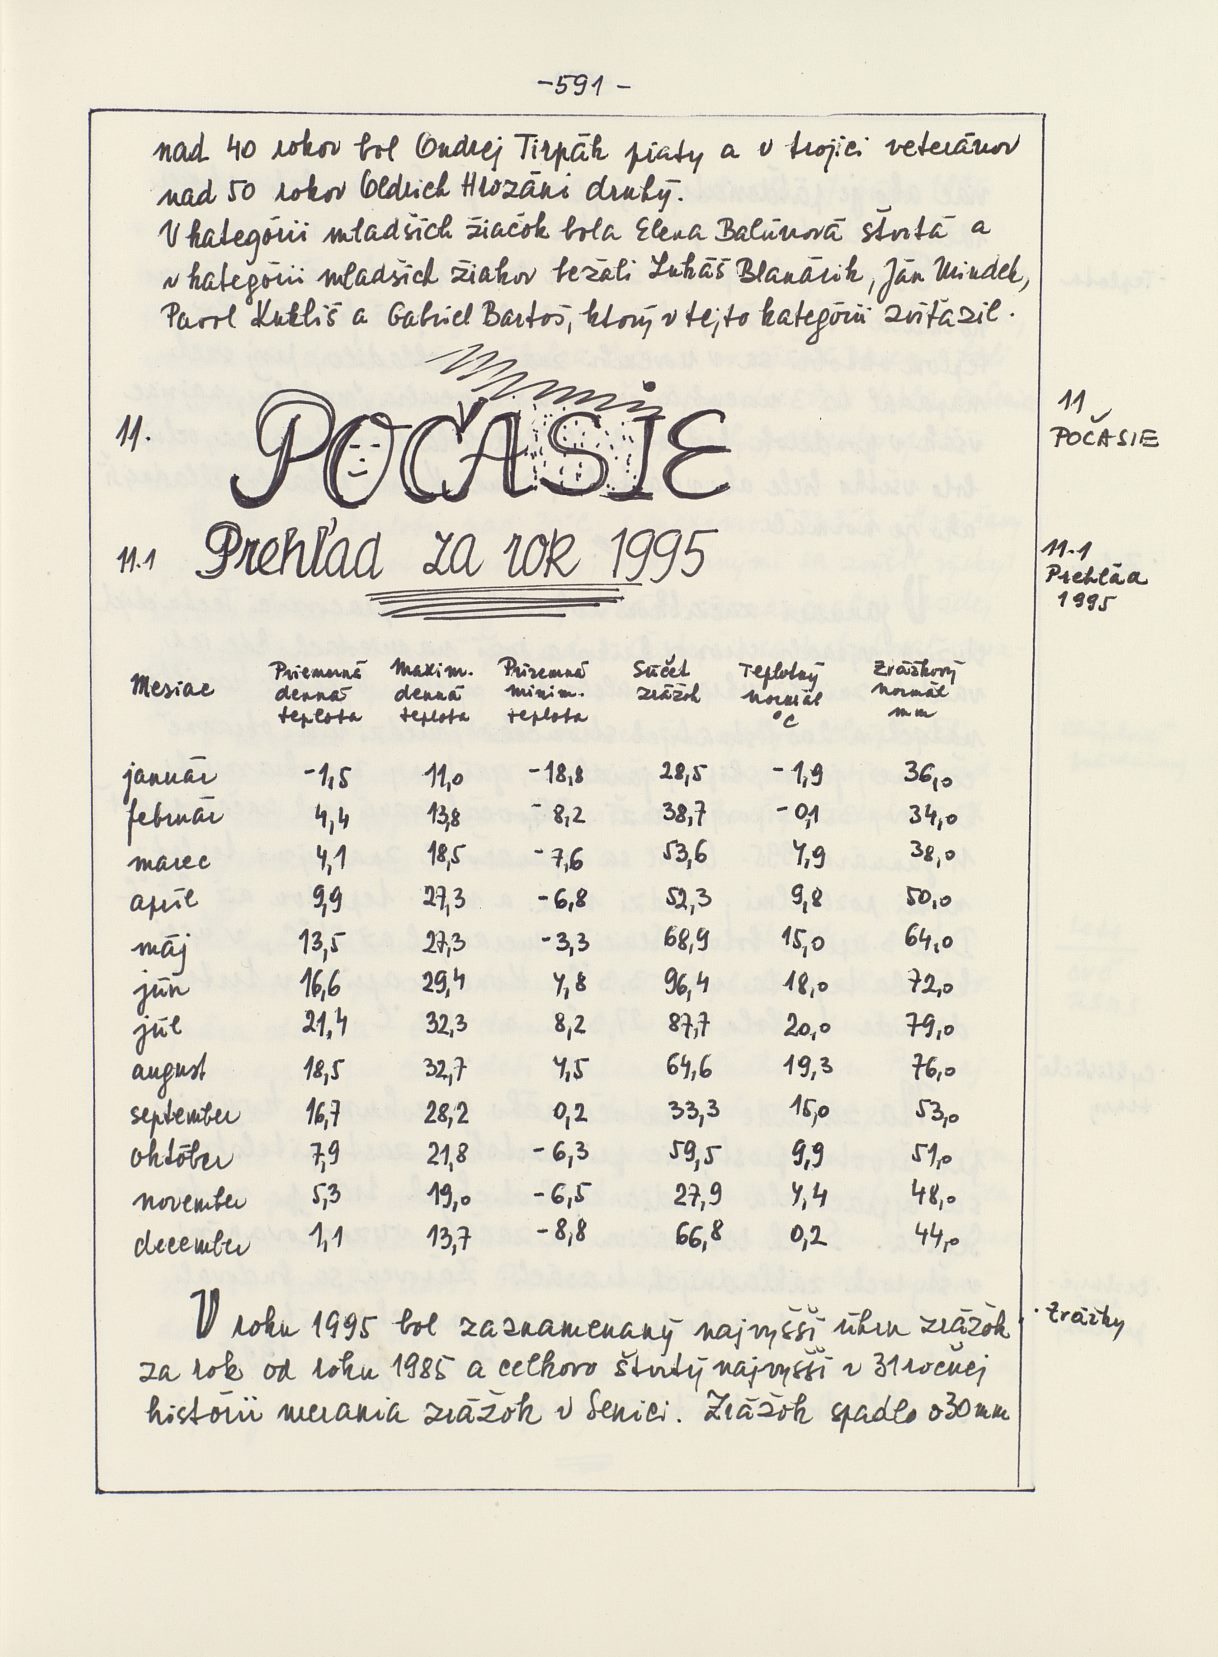 -591-
nad 40 rokov bol Ondrej Tirpák piaty a v trojici veteránov
nad 50 rokov Oldrich Hrozáni druhý.
V kategórii mladších žiačok bola Elena Balúnová štvrtá a
v kategórii mladších žiakov bežali Lukáš Blanárik, Ján Mindek,
Pavol Kukliš a Gabriel Bartoš, ktorý v tejto kategórii zvíťazil.
11. POČASIE
11 POČASIE
11.1 Prehľad za rok 1995
11.1 Prehľad 1995
Mesiac Priemerná denná teplota Maxim. denná teplota Prízemná minim. teplota Súčet zrážok Teplotný normál °C Zrážkový normál mm
január -1,5 11,0 -18,8 28,5 -1,9 36,0
február 4,4 13,8 -8,2 38,7 -0,1 34,0
marec 4,1 18,5 -7,6 53,6 4,9 38,0
apríl 9,9 27,3 -6,8 52,3 9,8 50,0
máj 13,5 27,3 -3,3 68,9 15,0 64,0
jún 16,6 29,4 4,8 96,4 18,0 72,0
júl 21,4 32,3 8,2 87,7 20,0 79,0
august 18,5 32,7 4,5 64,6 19,3 76,0
september 16,7 28,2 0,2 33,3 15,0 53,0
október 7,9 21,8 -6,3 59,5 9,9 51,0
november 5,3 19,0 -6,5 27,9 4,4 48,0
december 1,1 13,7 -8,8 66,8 0,2 44,0
V roku 1995 bol zaznamenaný najvyšší úhrn zrážok
· Zrážky
za rok od roku 1985 a celkovo štvrtý najvyšší v 31 ročnej
histórii merania zrážok v Senici. Zrážok spadlo o 30 mm